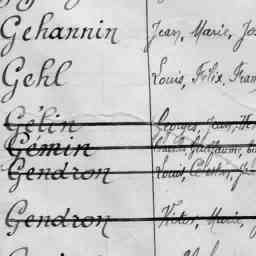 Gehannin Jean, Marie, Jo
Gehl Louis, Félix, Fran
Gélin Georges, Jean, He
Gémin Guillaume,
Gendron Louis,
Gendron Victor, Marie, J